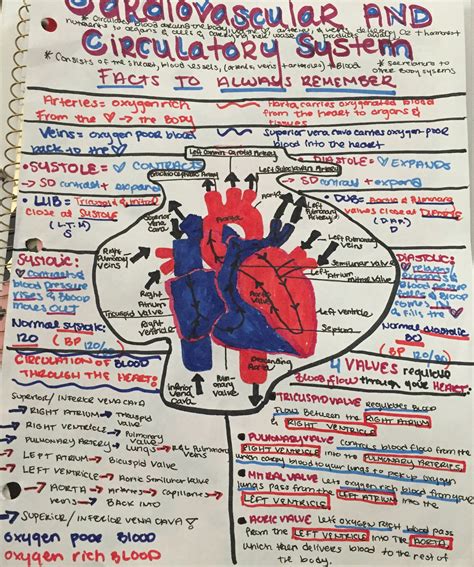 Cardiovascular AND
Circulatory System
* Consists of the heart, blood vessels, (arteries, veins + capillaries) + Blood
FACTS TO ALWAYS REMEMBER
Arteries = oxygen rich
From the ♥ → the Body
Aorta, carries oxygenated blood
from the heart to organs &
tissues
Veins = oxygen poor blood
back to the ♥
Superior vena cava carries oxygen-poor
blood into the heart
Left Common Carotid Artery
Brachiocephalic Artery
Left Subclavian Artery
• SYSTOLE = ♥ CONTRACTS
→ SD contract + expand
• DIASTOLE = ♥ EXPANDS
→ SD contract + expand
• LUB = Tricuspid & mitral
close at SYSTOLE
• DUB = Aortic & Pulmonary
valves close at Diastole
Superior
Vena
Cava
Aorta
Left
Pulmonary
Arteries
Right
Pulmonary
Veins
Left Pulmonary
Veins
Semilunar Valve
Left
Atrium
Mitral Valve
Right
Atrium
Tricuspid Valve
Right
Ventricle
Left Ventricle
Septum
Inferior
Vena
Cava
Descending
Aorta
SYSTOLIC:
♥ contracts
blood pressure
rises & Blood
moves out
Normal systolic:
120 (BP 120/80)
DIASTOLIC:
♥ relaxes
Blood
♥ fill
Normal diastolic
80 (BP 120/80)
CIRCULATION OF BLOOD
THROUGH THE HEART:
Superior / Inferior vena cava
→ RIGHT ATRIUM → Tricuspid
Valve
→ RIGHT VENTRICLE → Pulmonary
Valve
→ PULMONARY ARTERY → Lungs → Pulmonary
Veins
→ LEFT ATRIUM → Bicuspid Valve
→ LEFT VENTRICLE → Aortic Semilunar Valve
→ AORTA → arteries → capillaries →
veins → BACK INTO
→ SUPERIOR / INFERIOR VENA CAVA!
oxygen poor Blood
oxygen rich BLOOD
4 VALVES
Blood flow through your HEART:
• TRICUSPID VALVE regulates blood
flow between the RIGHT ATRIUM
& RIGHT VENTRICLE
• PULMONARY VALVE controls blood flow from the
RIGHT VENTRICLE into the PULMONARY ARTERIES
which carry blood to your lungs to pick up oxygen
• MITRAL VALVE lets oxygen rich blood from your
lungs pass from the LEFT ATRIUM into the
LEFT VENTRICLE
• AORTIC VALVE lets oxygen rich blood pass
from the LEFT VENTRICLE into the AORTA,
which then delivers blood to the rest of
the body.